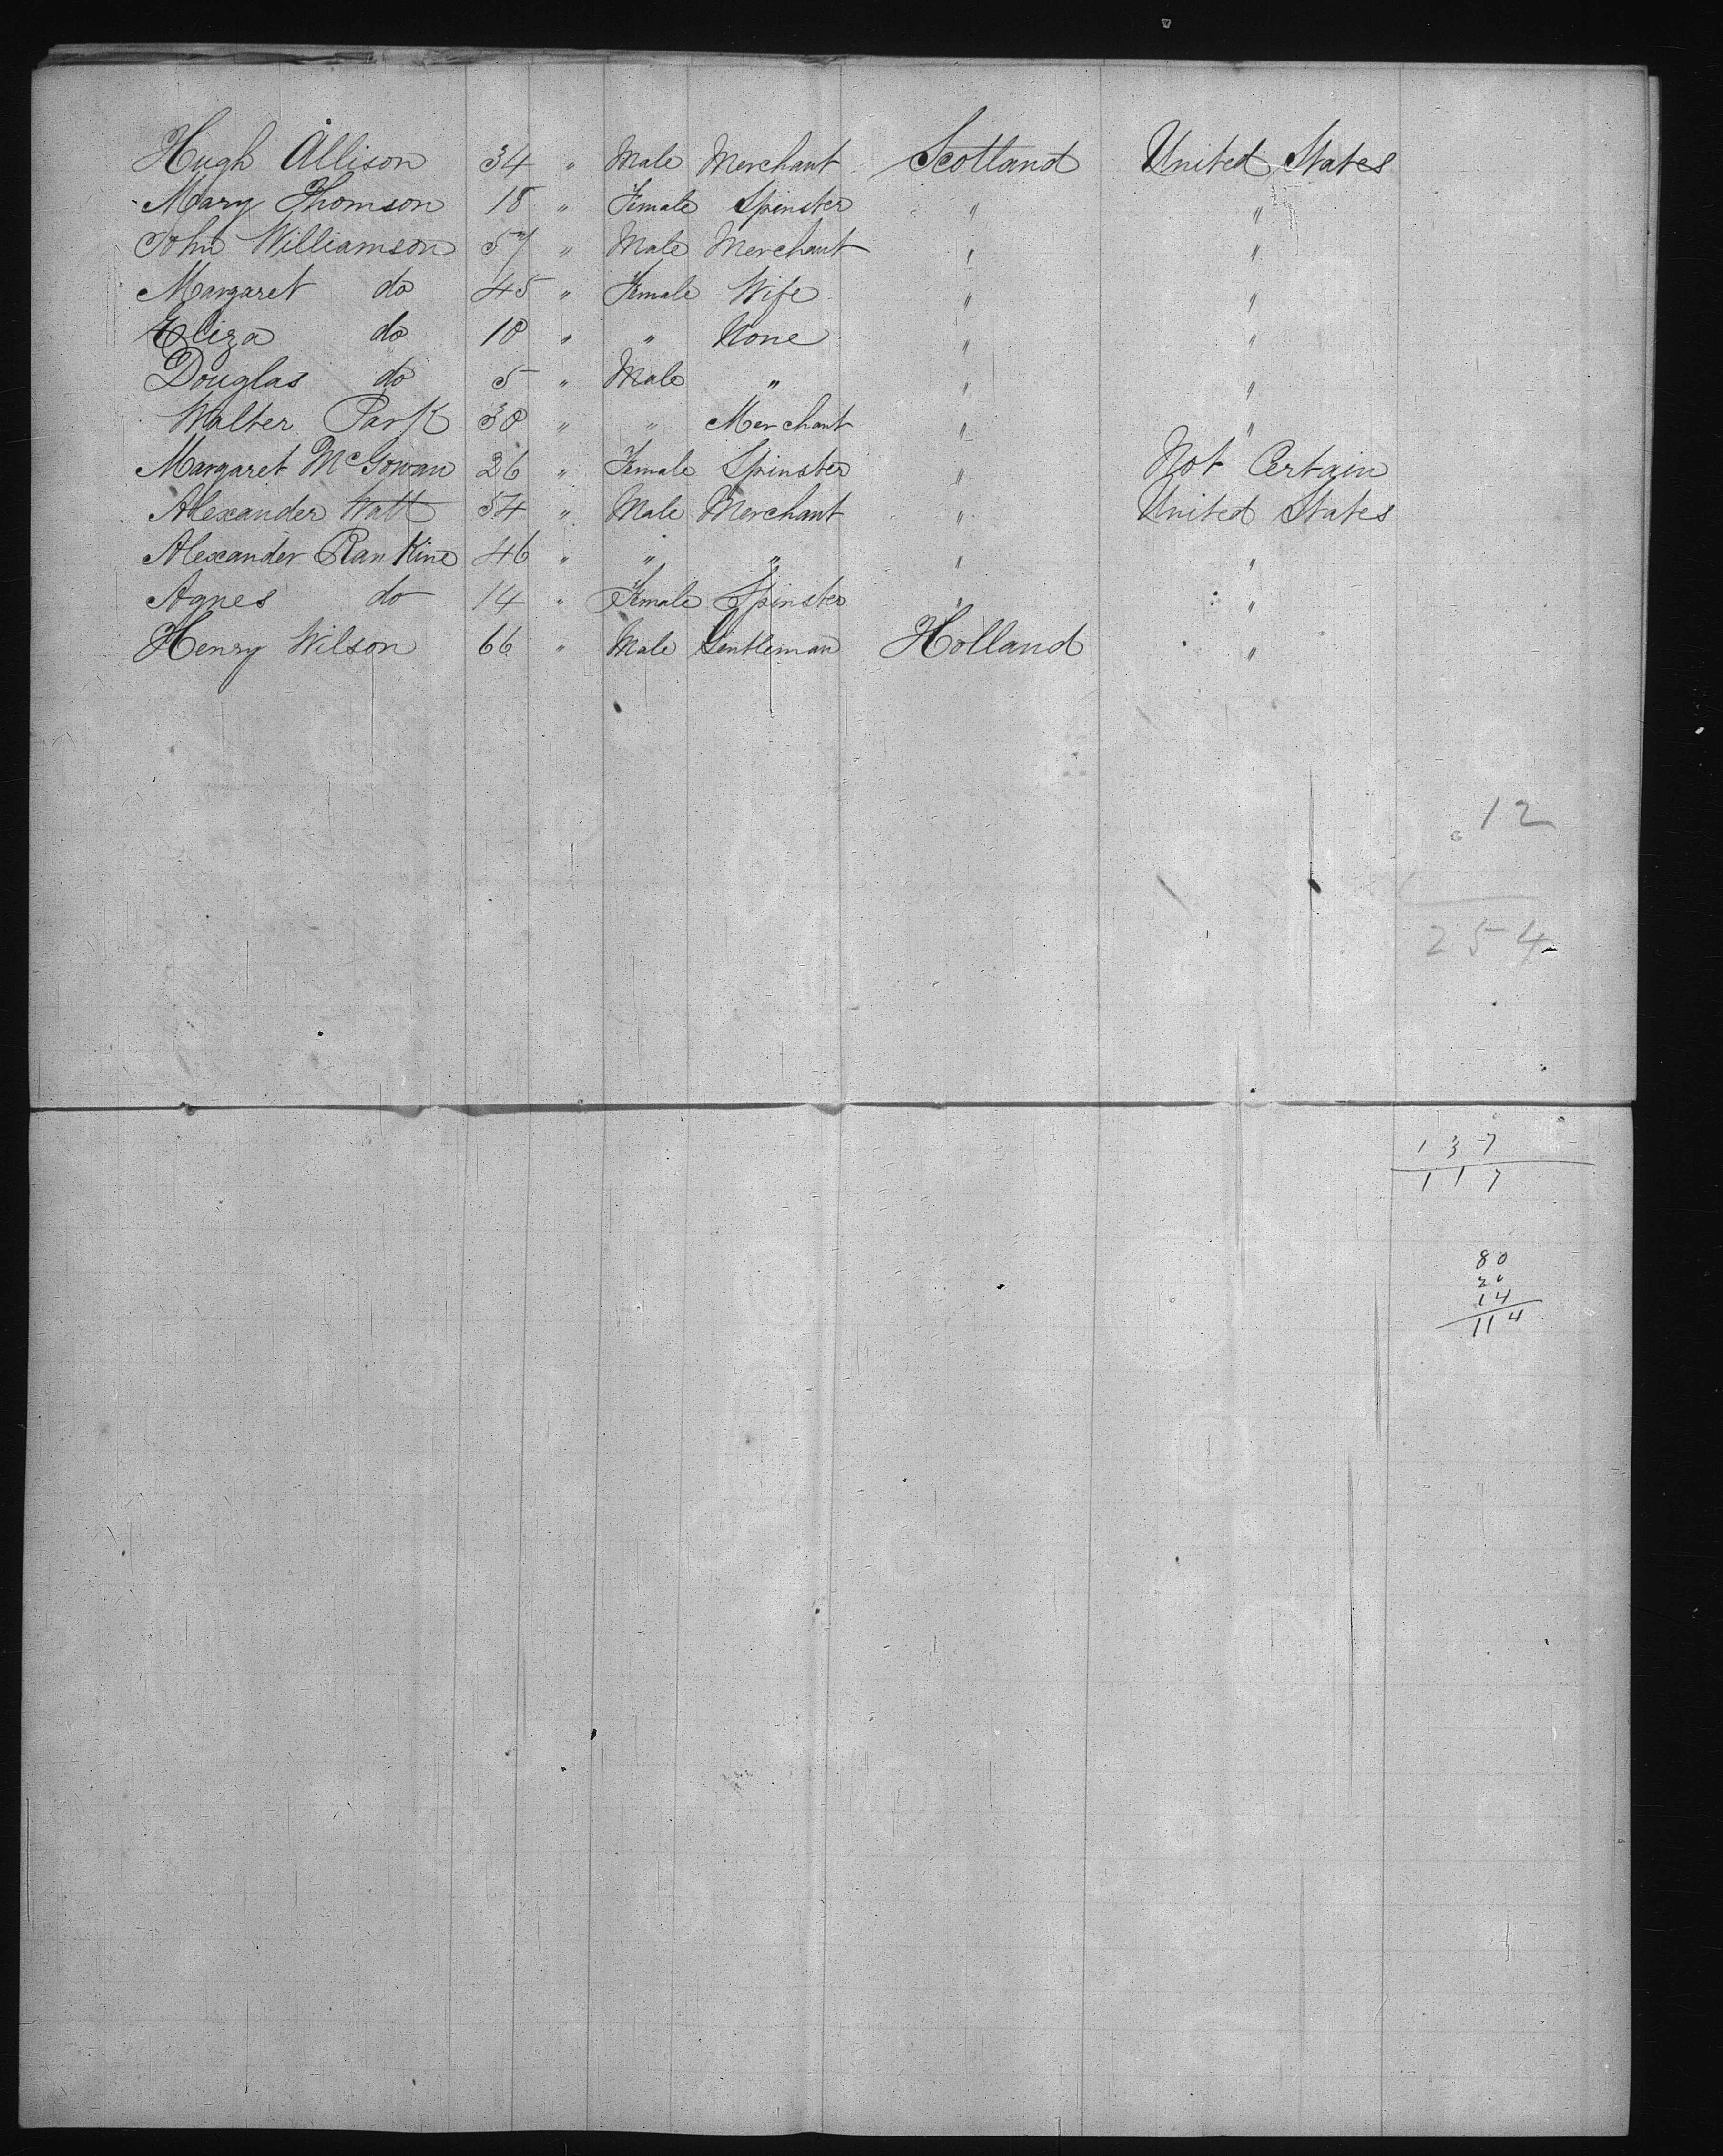 Hugh Allison 34 " Male Merchant Scotland United States
Mary Thomson 18 " Female Spinster " "
John Williamson 57 " Male Merchant " "
Margaret do 45 " Female Wife " "
Eliza do 10 " " None " "
Douglas do 5 " Male " " "
Walter Park 30 " " Merchant " "
Margaret McGowan 26 " Female Spinster " Not Certain
Alexander Watt 54 " Male Merchant " United States
Alexander Rankine 46 " " " " "
Agnes do 14 " Female Spinster " "
Henry Wilson 66 " Male Gentleman Holland "
12
254
137
117
80
20
14
114